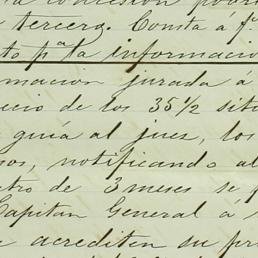 la concesión podrá
tercero. Consta á f
to pª la informacio
mación jurada á
cio de los 35½ siti
guia al juez, los
sos, notificando al
tro de 3 meses se p
Capitan General á s
e acrediten su pr